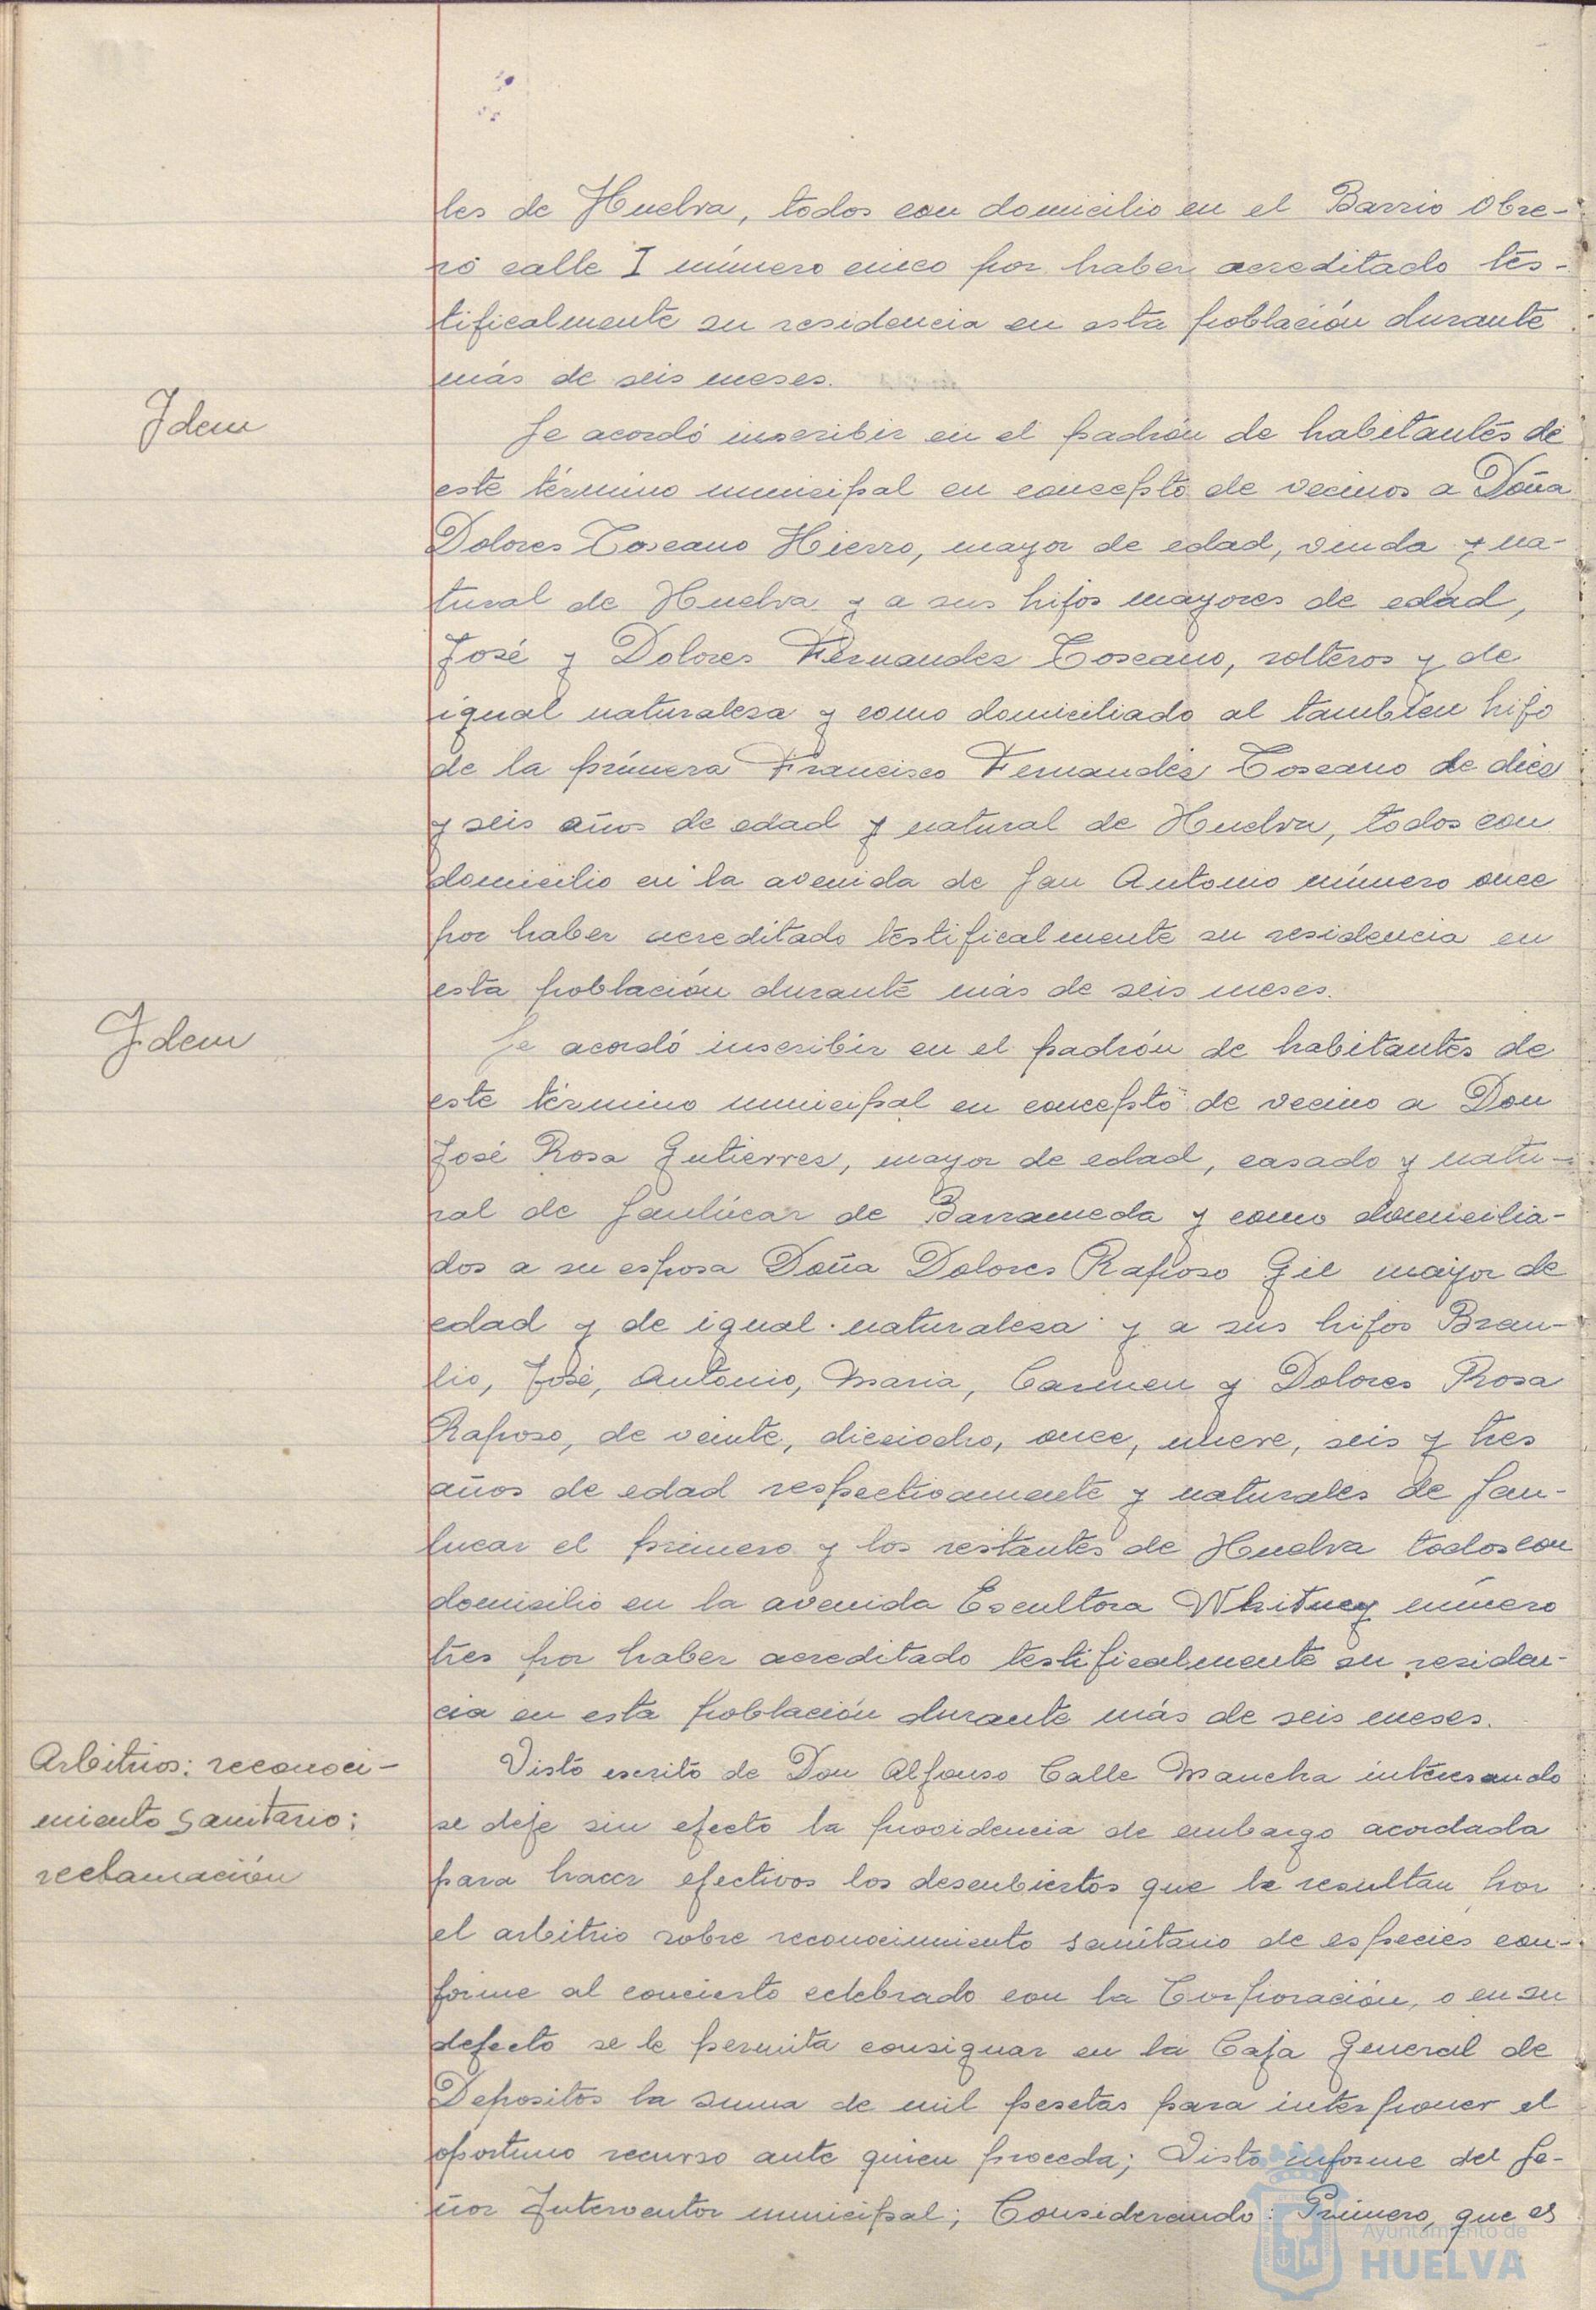 les de Huelva, todos con domicilio en el Barrio Obre-
ro calle I número cinco por haber acreditado tes-
tificalmente su residencia en esta población durante
más de seis meses.
Idem
Se acordó inscribir en el padrón de habitantes de
este término municipal en concepto de vecinos a Doña
Dolores Toscano Hierro, mayor de edad, viuda y na-
tural de Huelva y a sus hijos mayores de edad,
José y Dolores Fernandez Toscano, solteros y de
igual naturaleza y como domiciliado al tambien hijo
de la primera Francisco Fernandez Toscano de diez
y seis años de edad y natural de Huelva, todos con
domicilio en la avenida de San Antonio número once
por haber acreditado testificalmente su residencia en
esta población durante más de seis meses.
Idem
Se acordó inscribir en el padrón de habitantes de
este término municipal en concepto de vecino a Don
José Rosa Gutierrez, mayor de edad, casado y natu-
ral de Sanlúcar de Barrameda y como domicilia-
dos a su esposa Doña Dolores Raposo Gil mayor de
edad y de igual naturaleza y a sus hijos Brau-
lio, José, Antonio, Maria, Carmen y Dolores Rosa
Raposo, de veinte, dieciocho, once, nueve, seis y tres
años de edad respectivamente y naturales de San-
lucar el primero y los restantes de Huelva todos con
domicilio en la avenida Escultora Whitney número
tres por haber acreditado testificalmente su residen-
cia en esta población durante más de seis meses.
Arbitrios: reconoci-
miento sanitario:
reclamación
Visto escrito de Don Alfonso Calle Mancha interesando
se deje sin efecto la providencia de embargo acordada
para hacer efectivos los descubiertos que le resultan por
el arbitrio sobre reconocimiento sanitario de especies con-
forme al concierto celebrado con la Corporación, o en su
defecto se le permita consignar en la Caja General de
Depositos la suma de mil pesetas para interponer el
oportuno recurso ante quien proceda; Visto informe del Se-
ñor Interventor municipal; Considerando: Primero, que es
Ayuntamiento de
HUELVA